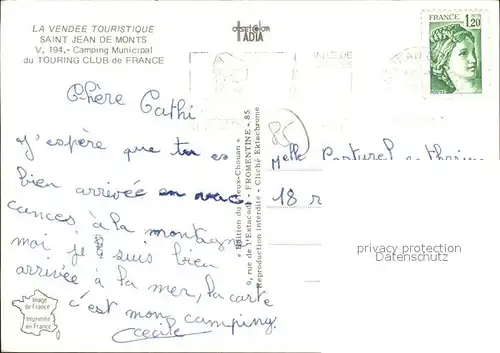 LA VENDEE TOURISTIQUE
SAINT JEAN DE MONTS
V. 194.- Camping Municipal
du TOURING CLUB de FRANCE
OFFSETCOLOR
IADIA
FRANCE
1,20
Chère Cathi
J'espère que tu es
bien arrivée en vac
cances à la montagne
moi je suis bien
arrivée à la mer, la carte
c'est mon camping.
Cécile
Edition du "Vieux-Chouan"
9, rue de l'Estacade - FROMENTINE - 85
Reproduction interdite - Cliché Ektachrome
85
Melle Pasturel
18 r
privacy protection
Datenschutz
Image
de France
Imprimée
en France